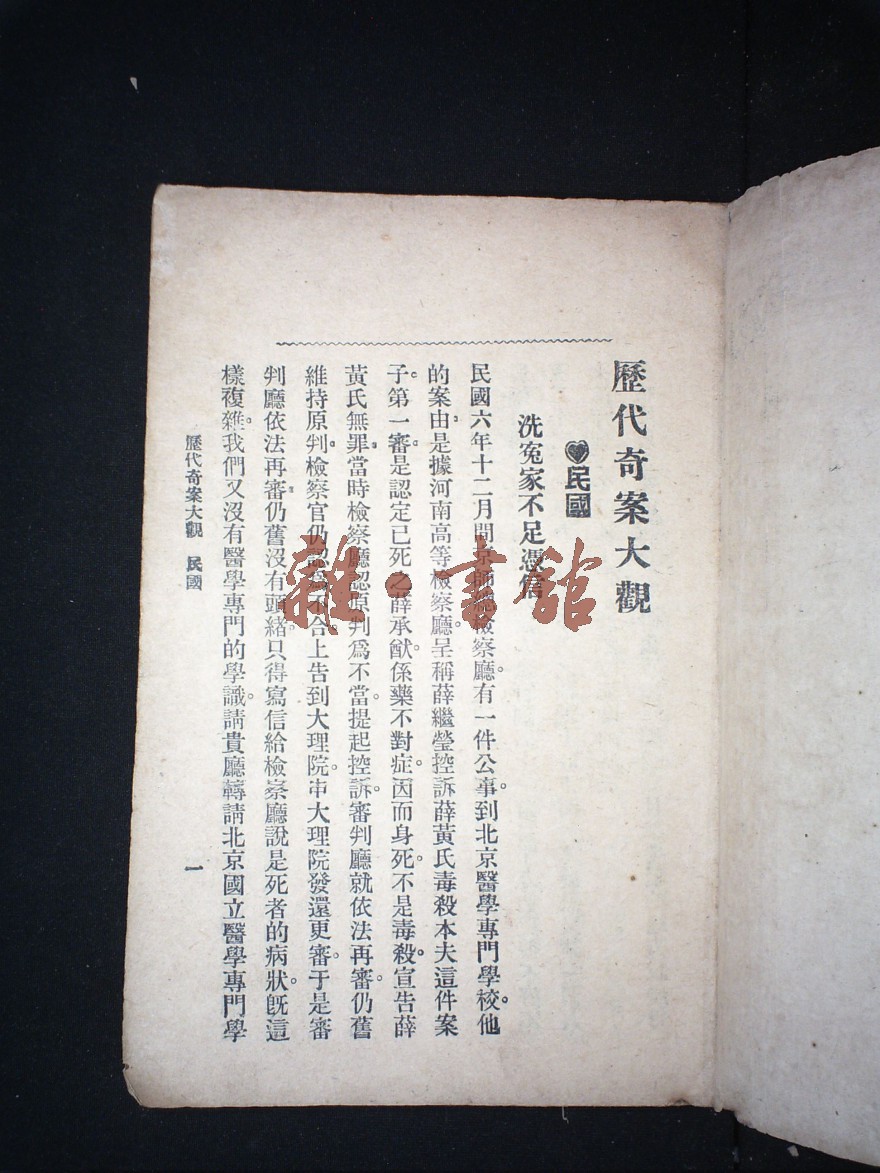 歷代奇案大觀
民國
洗冤家不足憑信
民國六年十二月間京師總檢察廳。有一件公事。到北京醫學專門學校。他
的案由。是據河南高等檢察廳。呈稱薛繼瑩控訴薛黃氏毒殺本夫這件案
子。第一審。是認定已死之薛承猷。係藥不對症。因而身死。不是毒殺。宣告薛
黃氏無罪。當時檢察廳認原判爲不當。提起控訴。審判廳就依法再審。仍舊
維持原判。檢察官仍認爲不合。上告到大理院。由大理院發還更審。于是審
判廳依法再審。仍舊沒有頭緒。只得寫信給檢察廳說是死者的病狀。旣這
樣複雜。我們又沒有醫學專門的學識。請貴廳轉請北京國立醫學專門學
歷代奇案大觀 民國
一
雜·書館